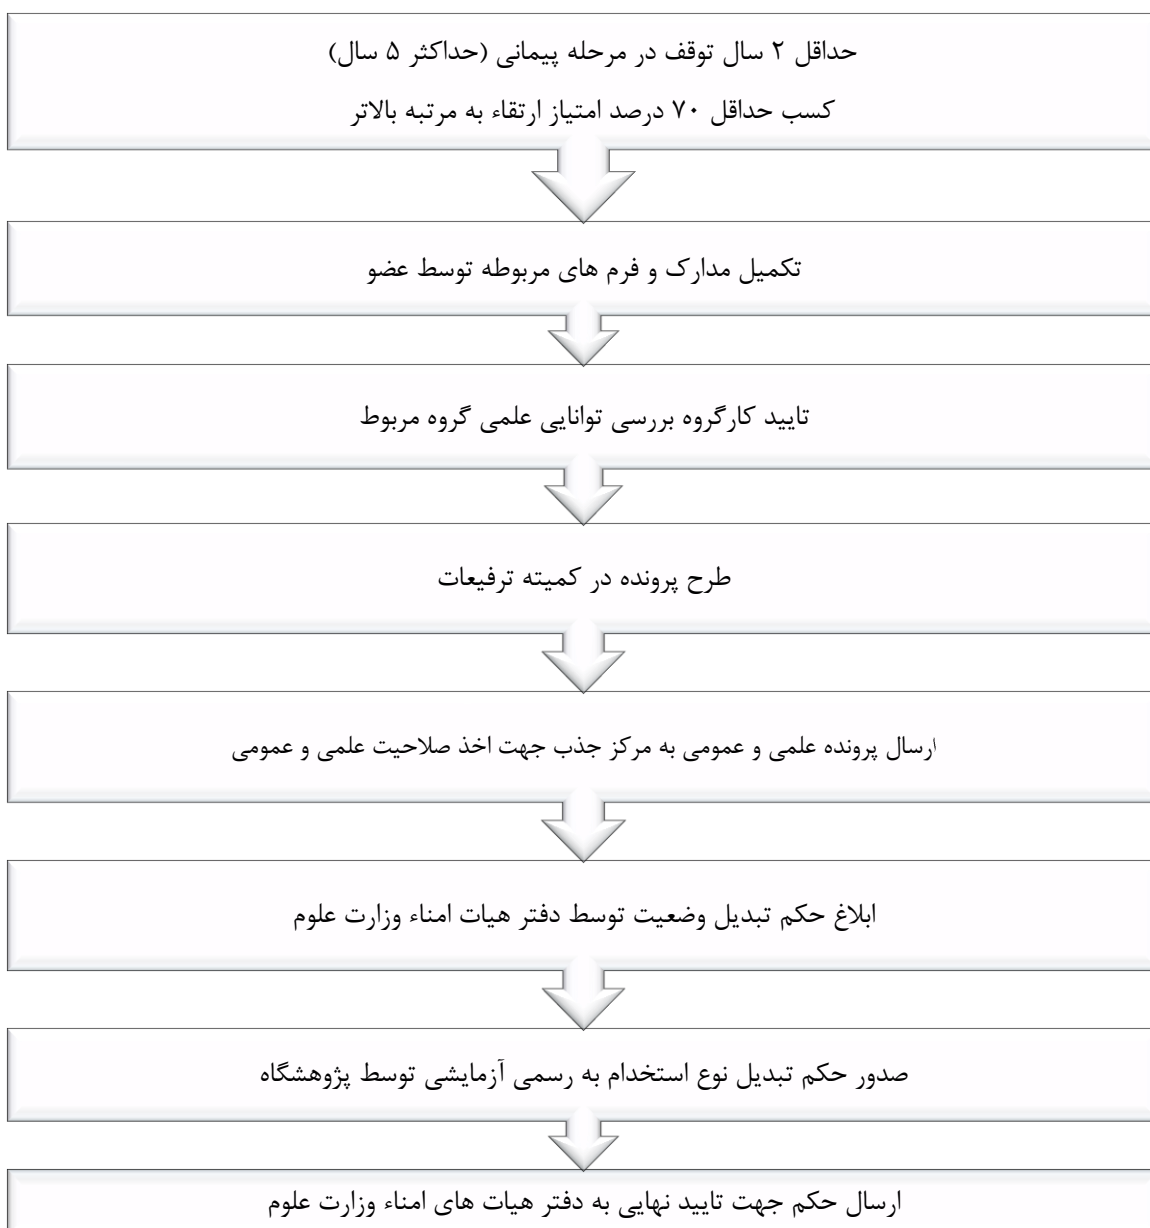 حداقل ۲ سال توقف در مرحله پیمانی (حداکثر ۵ سال)
کسب حداقل ۷۰ درصد امتیاز ارتقاء به مرتبه بالاتر
تکمیل مدارک و فرم های مربوطه توسط عضو
تایید کارگروه بررسی توانایی علمی گروه مربوط
طرح پرونده در کمیته ترفیعات
ارسال پرونده علمی و عمومی به مرکز جذب جهت اخذ صلاحیت علمی و عمومی
ابلاغ حکم تبدیل وضعیت توسط دفتر هیات امناء وزارت علوم
صدور حکم تبدیل نوع استخدام به رسمی آزمایشی توسط پژوهشگاه
ارسال حکم جهت تایید نهایی به دفتر هیات های امناء وزارت علوم